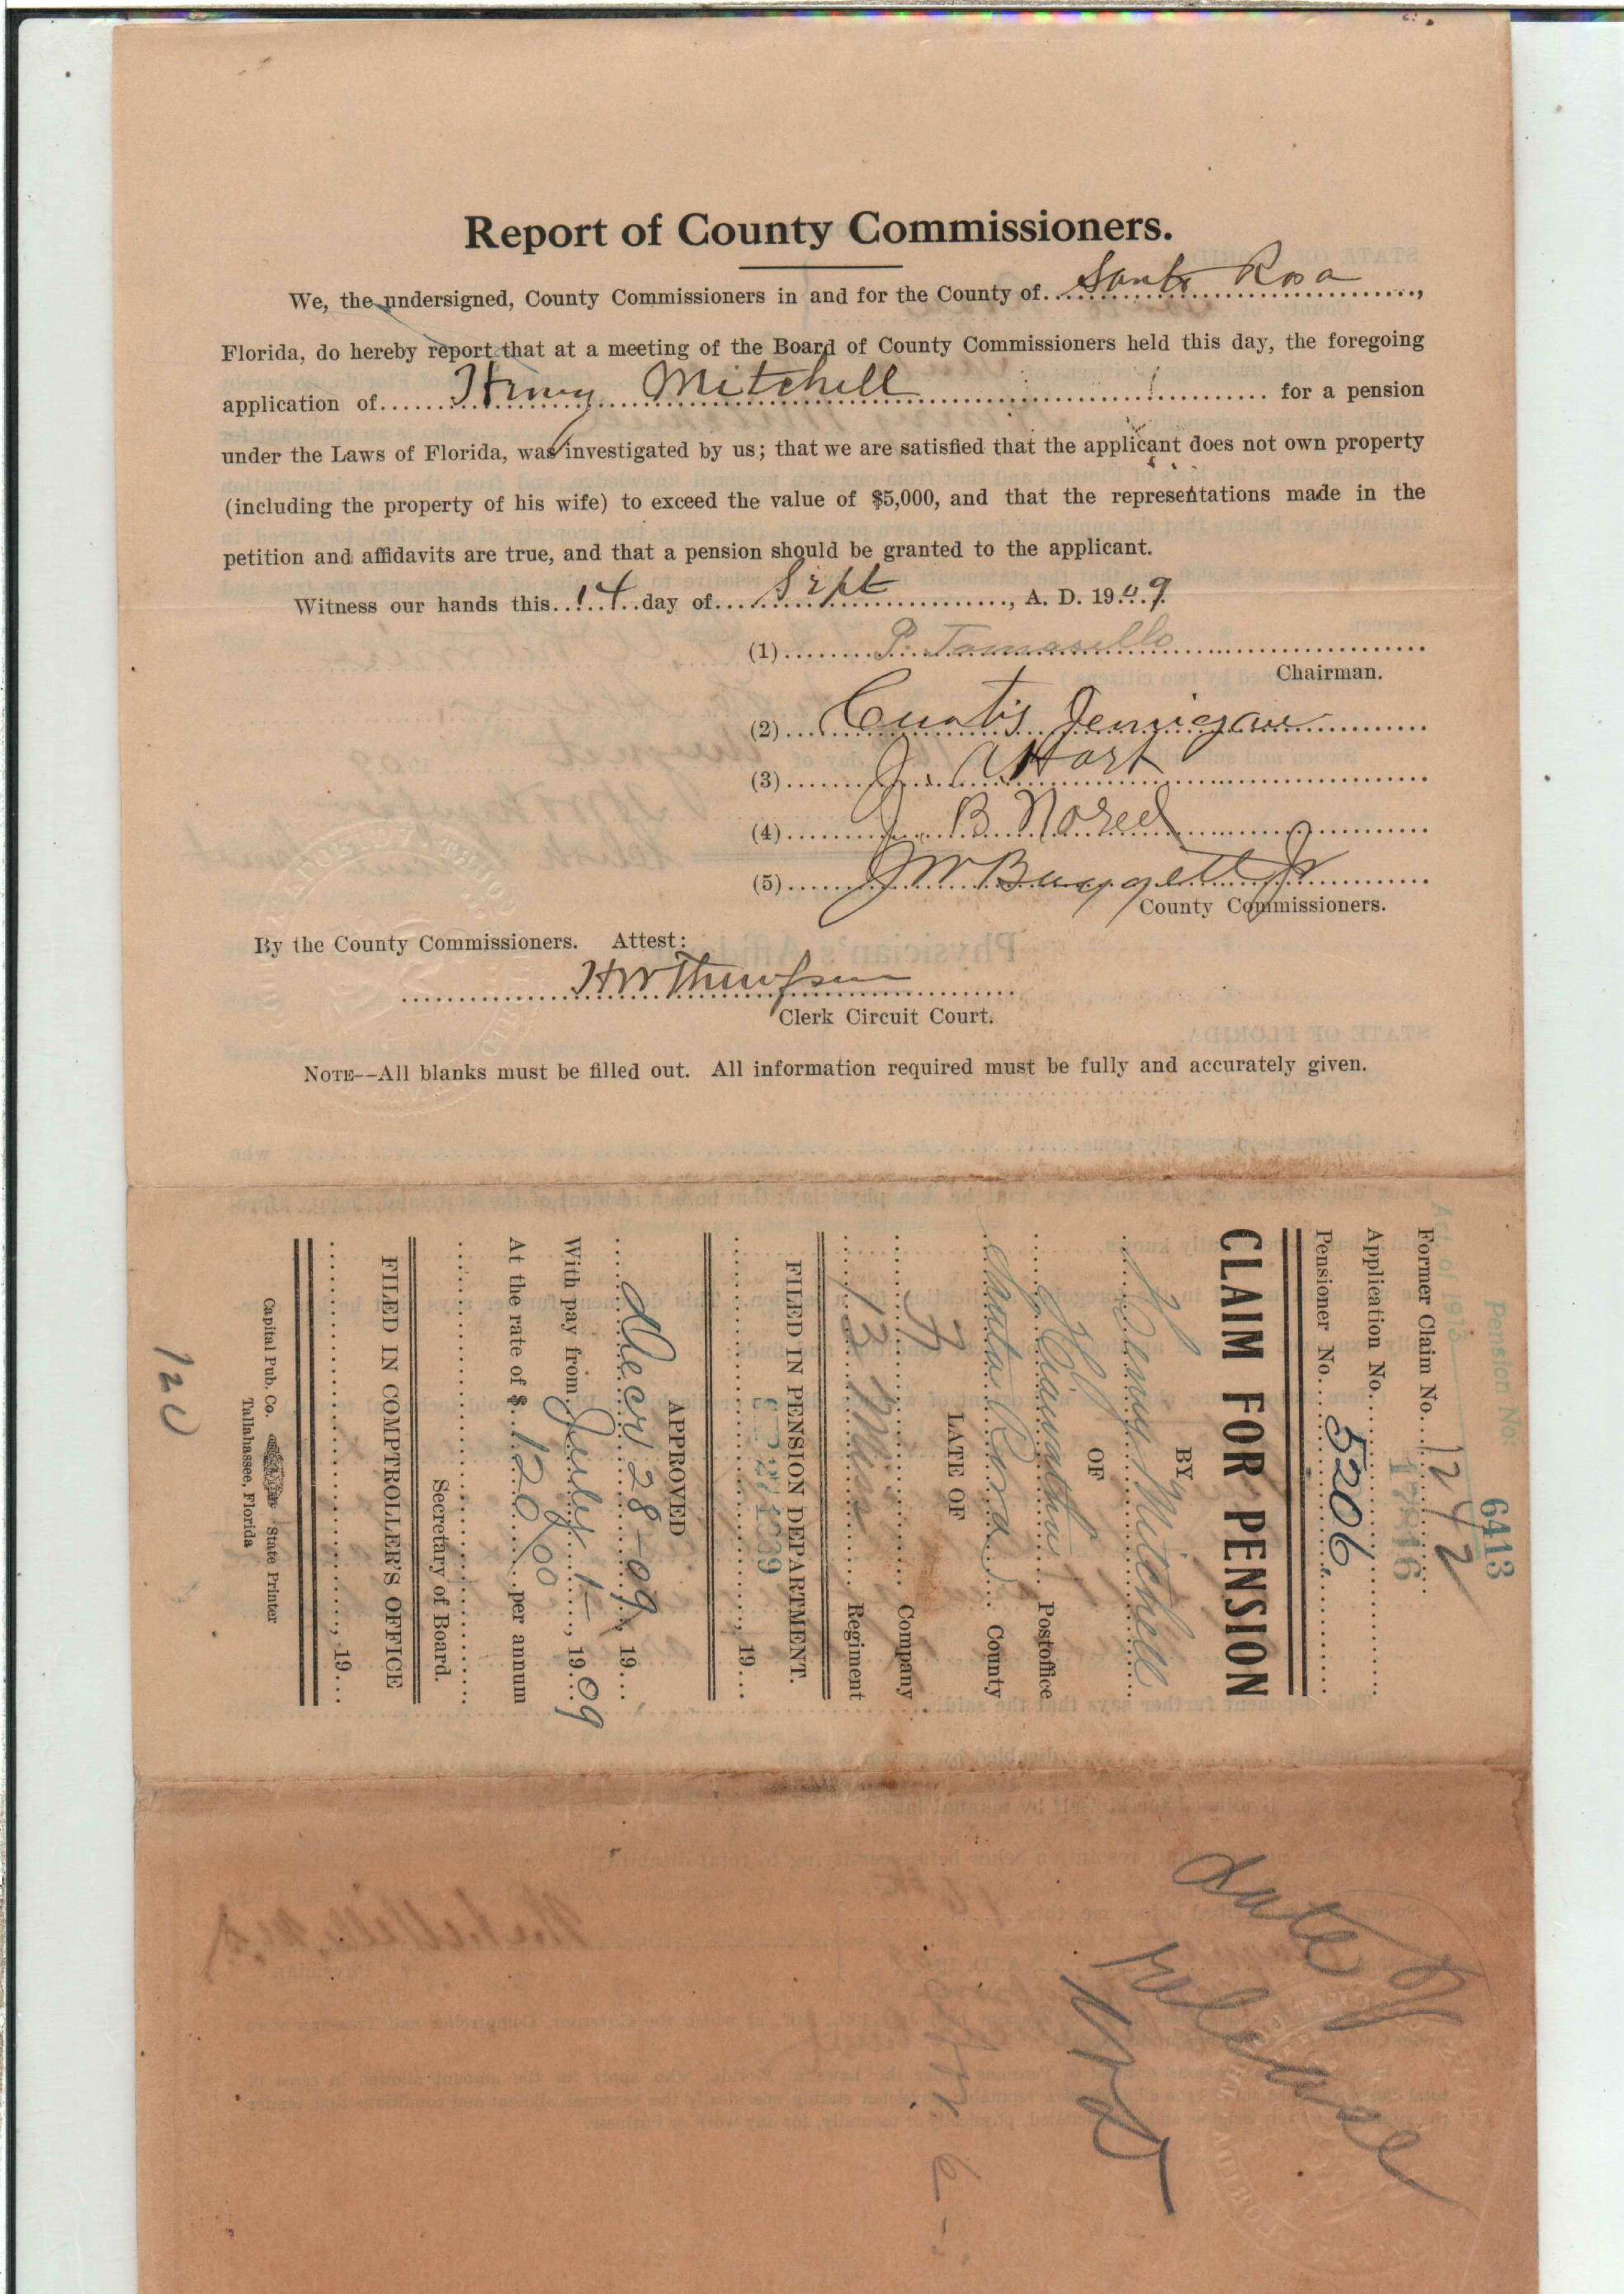 Report of County Commissioners.
We, the undersigned, County Commissioners in and for the County of Santa Rosa,
Florida, do hereby report that at a meeting of the Board of County Commissioners held this day, the foregoing
application of Henry Mitchell for a pension
under the Laws of Florida, was investigated by us; that we are satisfied that the applicant does not own property
(including the property of his wife) to exceed the value of $5,000, and that the representations made in the
petition and affidavits are true, and that a pension should be granted to the applicant.
Witness our hands this 14 day of Sept, A. D. 1909
(1) P. Tomasello
Chairman.
(2) Curtis Jernigan
(3) J. A Hart
(4) J. B. Nored
(5) J W Baggett Jr
County Commissioners.
By the County Commissioners. Attest:
H W Thompson
Clerk Circuit Court.
NOTE--All blanks must be filled out. All information required must be fully and accurately given.
Pension No: 6413
Act of 1913
Former Claim No. 1242
Application No.
Pensioner No. 5206
CLAIM FOR PENSION
BY
Henry Mitchell
OF
Postoffice
Santa Rosa County
LATE OF
Company
13 Regiment
FILED IN PENSION DEPARTMENT.
, 19
APPROVED
Decr 28-09, 19
With pay from July 1-, 1909
At the rate of $ 120/00 per annum
Secretary of Board.
FILED IN COMPTROLLER'S OFFICE
, 19
Capital Pub. Co. State Printer
Tallahassee, Florida
120
date of
release